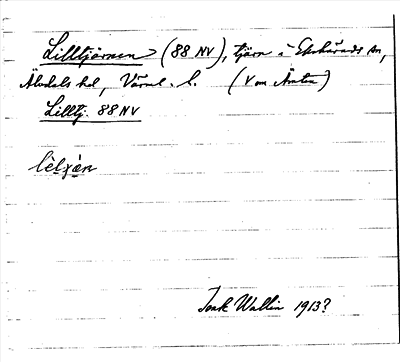 Lilltjärnen (88 NV), tjärn i Ekshärads sn,
Älvdals hd, Värml. l. (V om Ämten)
Lilltj. 88 NV
Josk Wallin 1913?